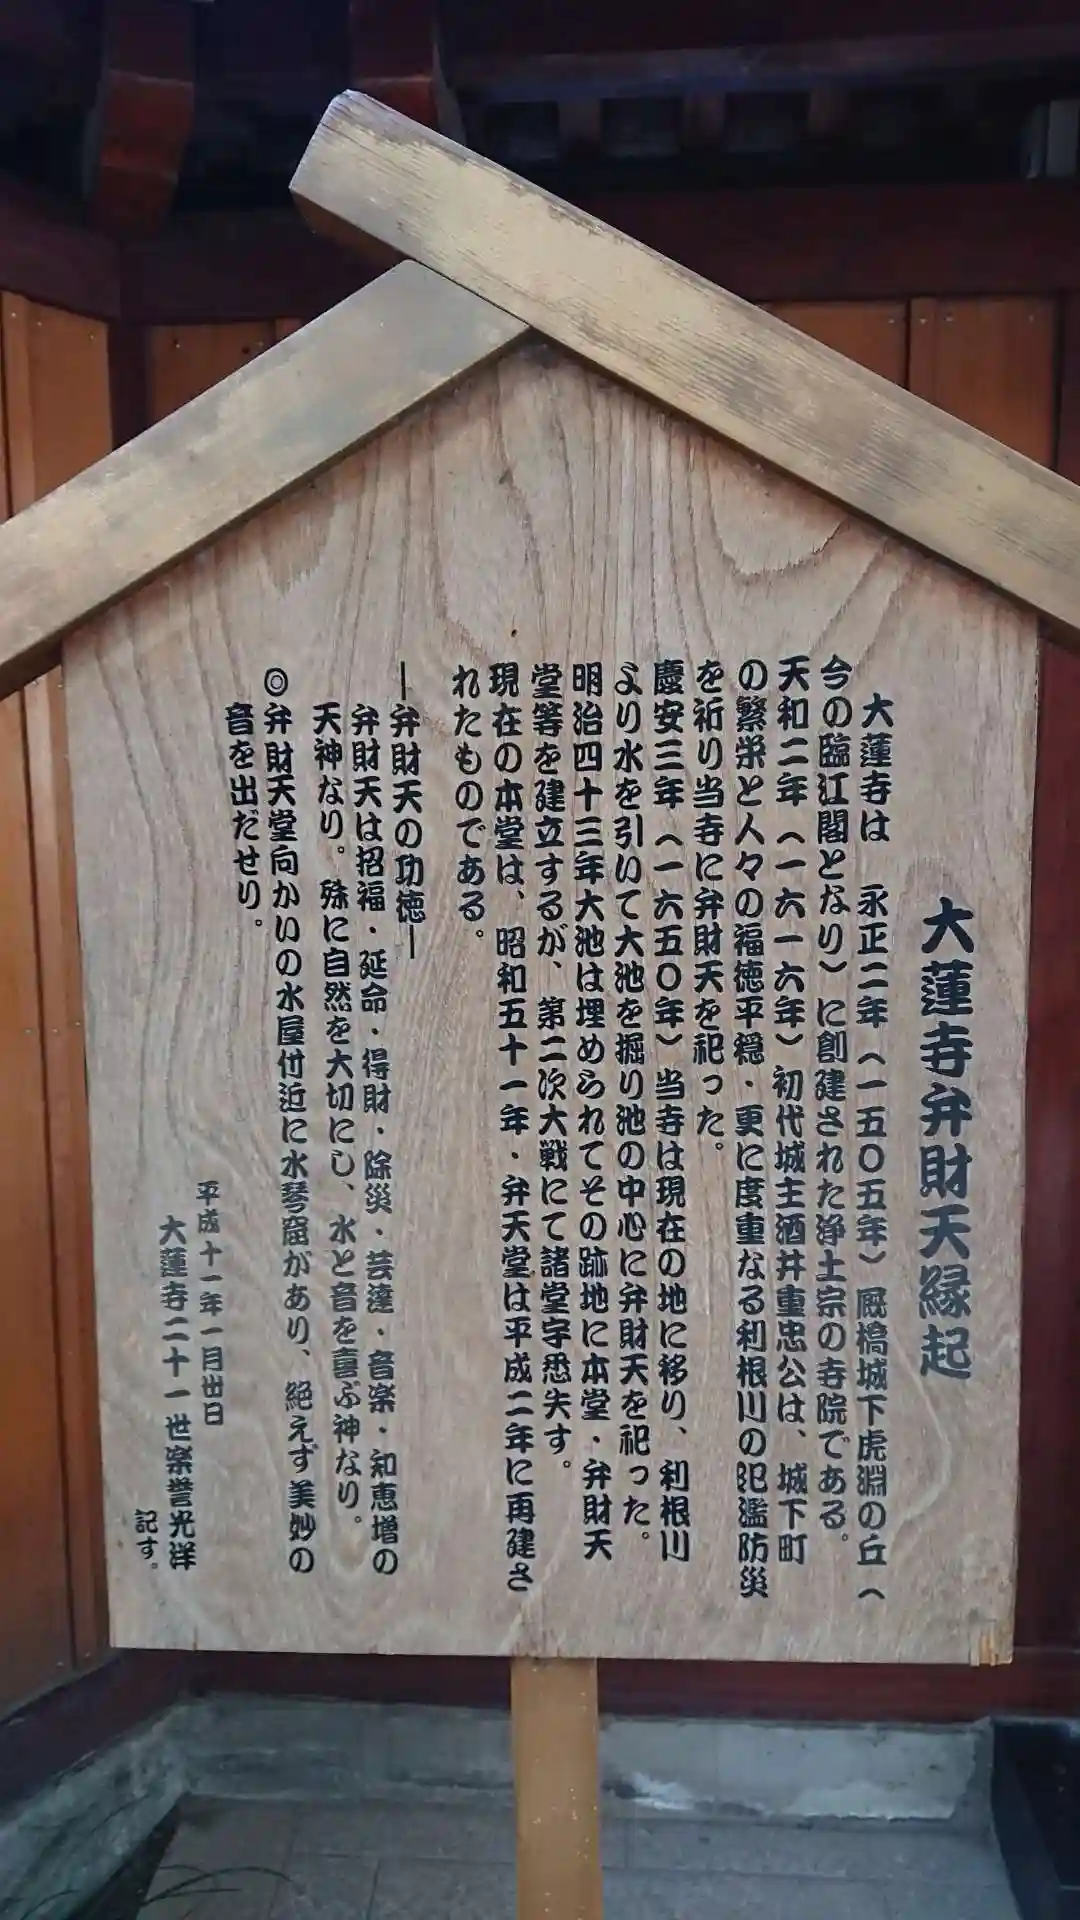 大蓮寺弁財天縁起
大蓮寺は 永正二年（一五〇五年）厩橋城下虎淵の丘（
今の臨江閣となり）に創建された浄土宗の寺院である。
天和二年（一六一六年）初代城主酒井重忠公は、城下町
の繁栄と人々の福徳平穏・更に度重なる利根川の氾濫防災
を祈り当寺に弁財天を祀った。
慶安三年（一六五〇年）当寺は現在の地に移り、利根川
より水を引いて大池を掘り池の中心に弁財天を祀った。
明治四十三年大池は埋められてその跡地に本堂・弁財天
堂等を建立するが、第二次大戦にて諸堂宇悉失す。
現在の本堂は、昭和五十一年・弁天堂は平成二年に再建さ
れたものである。
―弁財天の功徳―
弁財天は招福・延命・得財・除災・芸達・音楽・知恵増の
天神なり。殊に自然を大切にし、水と音を喜ぶ神なり。
◎弁財天堂向かいの水屋付近に水琴窟があり、絶えず美妙の
音を出だせり。
平成十一年一月吉日
大蓮寺二十一世楽誉光洋
記す。